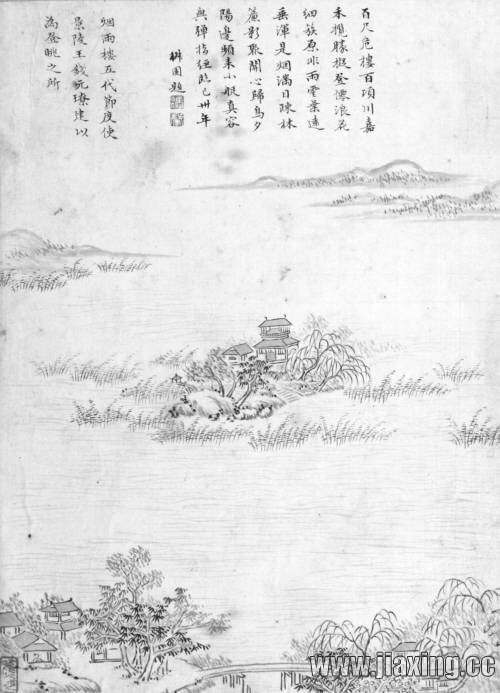 百尺危樓百頃川嘉
禾攬勝擬登僊浪花
細蔟原非雨雲葉遠
垂渾是烟滿目林
影聚閒心歸鳥夕
陽邊頻來小艇真容
與彈指經臨已卅年
園題
烟雨樓五代節度使
陵王錢璙建以
為登眺之所
www.jiaxing.cc